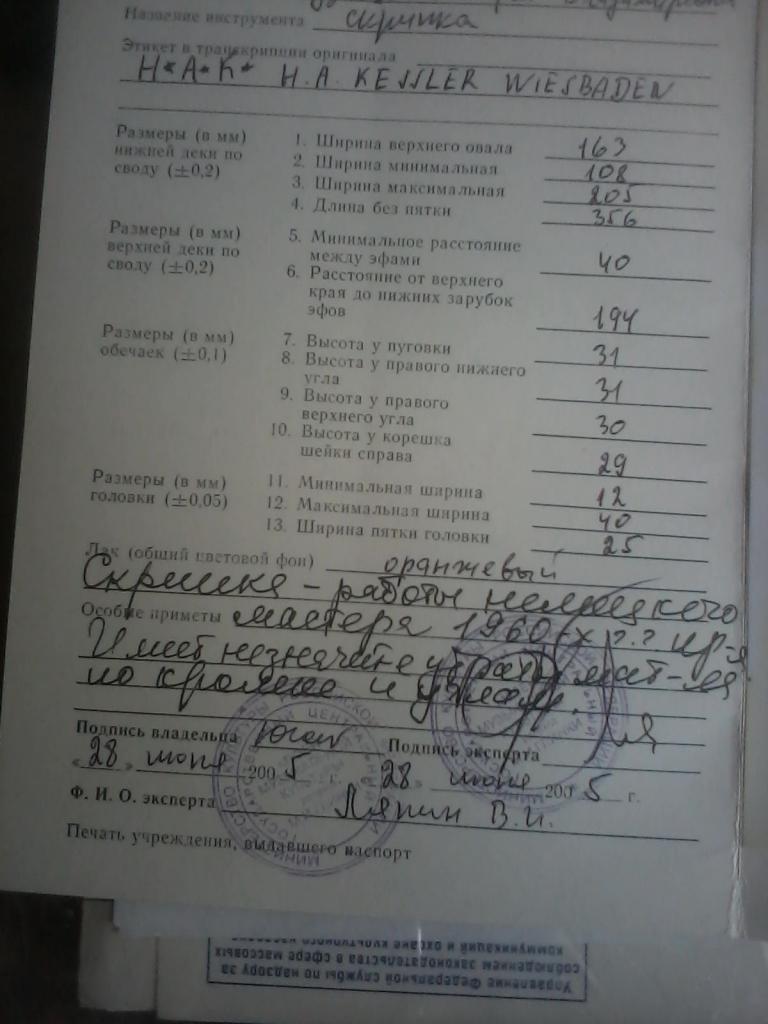 Название инструмента скрипка
Этикет в транскрипции оригинала
H*A*K* H.A. KESSLER WIESBADEN
Размеры (в мм)
нижней деки по
своду (±0,2)
1. Ширина верхнего овала 163
2. Ширина минимальная 108
3. Ширина максимальная 205
4. Длина без пятки 356
Размеры (в мм)
верхней деки по
своду (±0,2)
5. Минимальное расстояние
между эфами 40
6. Расстояние от верхнего
края до нижних зарубок
эфов 194
Размеры (в мм)
обечаек (±0,1)
7. Высота у пуговки 31
8. Высота у правого нижнего
угла 31
9. Высота у правого
верхнего угла 30
10. Высота у корешка
шейки справа 29
Размеры (в мм)
головки (±0,05)
11. Минимальная ширина 12
12. Максимальная ширина 40
13. Ширина пятки головки 25
Лак (общий цветовой фон) оранжевый
Скрипка - работы немецкого
Особые приметы мастера 1960-х г.г.
Имеет незначит-е утраты мат-ла
по кромке и
Подпись владельца
Подпись эксперта
«28» июня 2005 г.
28 июня 2005 г.
Ф. И. О. эксперта Ляпин В.И.
Печать учреждения, выдавшего паспорт
Управление Федеральной службы по надзору за
соблюдением законодательства в сфере массовых
коммуникаций и охране культурного наследия